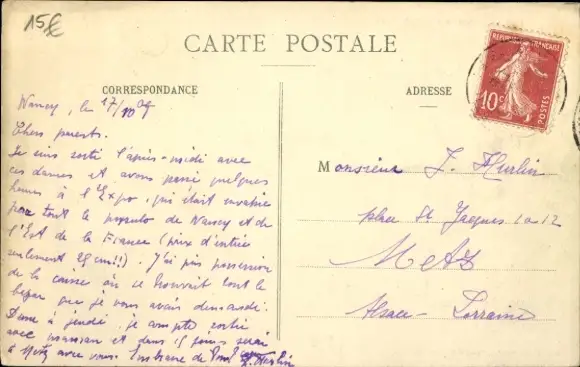 15€
CARTE POSTALE
CORRESPONDANCE
ADRESSE
REPUBLIQUE FRANÇAISE
10c
POSTES
Nancy, le 17/10 09
Chers parents.
Je suis sorti l'après-midi avec
ces dames et avons passé quelques
heures à l'Expo, qui était envahie
par tout le populo de Nancy et de
l'Est de la France (prix d'entrée
seulement 25 cm!!). J'ai pris possession
de la caisse où se trouvait tout le
bazar que je vous avais demandé.
Donc à jeudi, je compte sortir
avec maman et dans 15 jours serai
à Metz avec vous. Embrasse de
Monsieur J. Hurlin
place St Jacques 10 12
Metz
Alsace-Lorraine